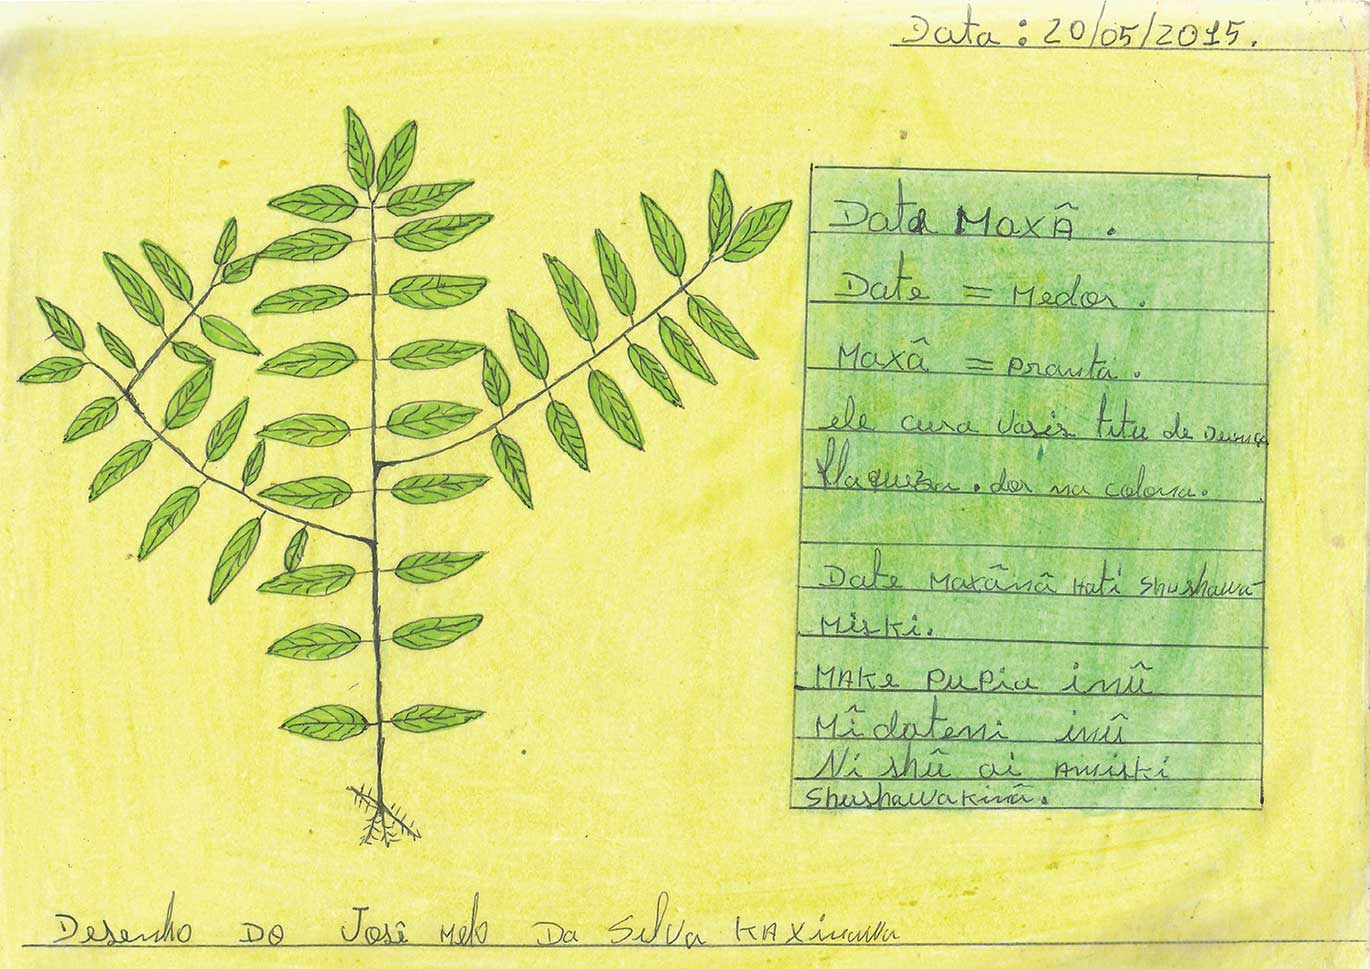 Data : 20/05/2015.
Data Maxâ .
Date = Medor .
Maxâ = pranta .
ele cura varis titu de
flaqueza . dor na colona .
Date Maxânâ Hati Shushawa
Miski.
Make pupia inû
Mî dateni inû
Ni shû ai amiski
Shushawakinâ.
Desenho Do José Melo Da Silva Kaxinawa